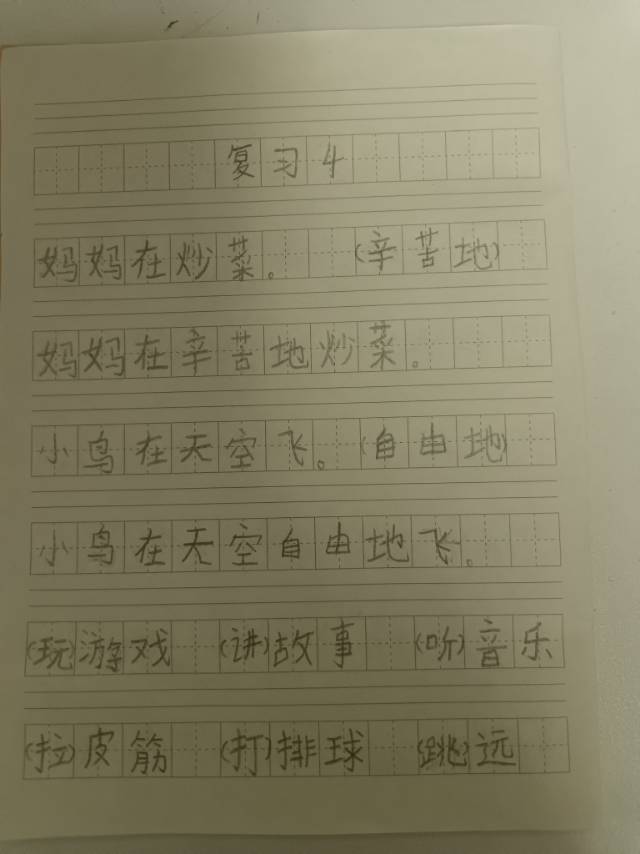 复习4
妈妈在炒菜。 (辛苦地)
妈妈在辛苦地炒菜。
小鸟在天空飞。(自由地)
小鸟在天空自由地飞。
(玩)游戏 (讲)故事 (听)音乐
(拉)皮筋 (打)排球 (跳)远